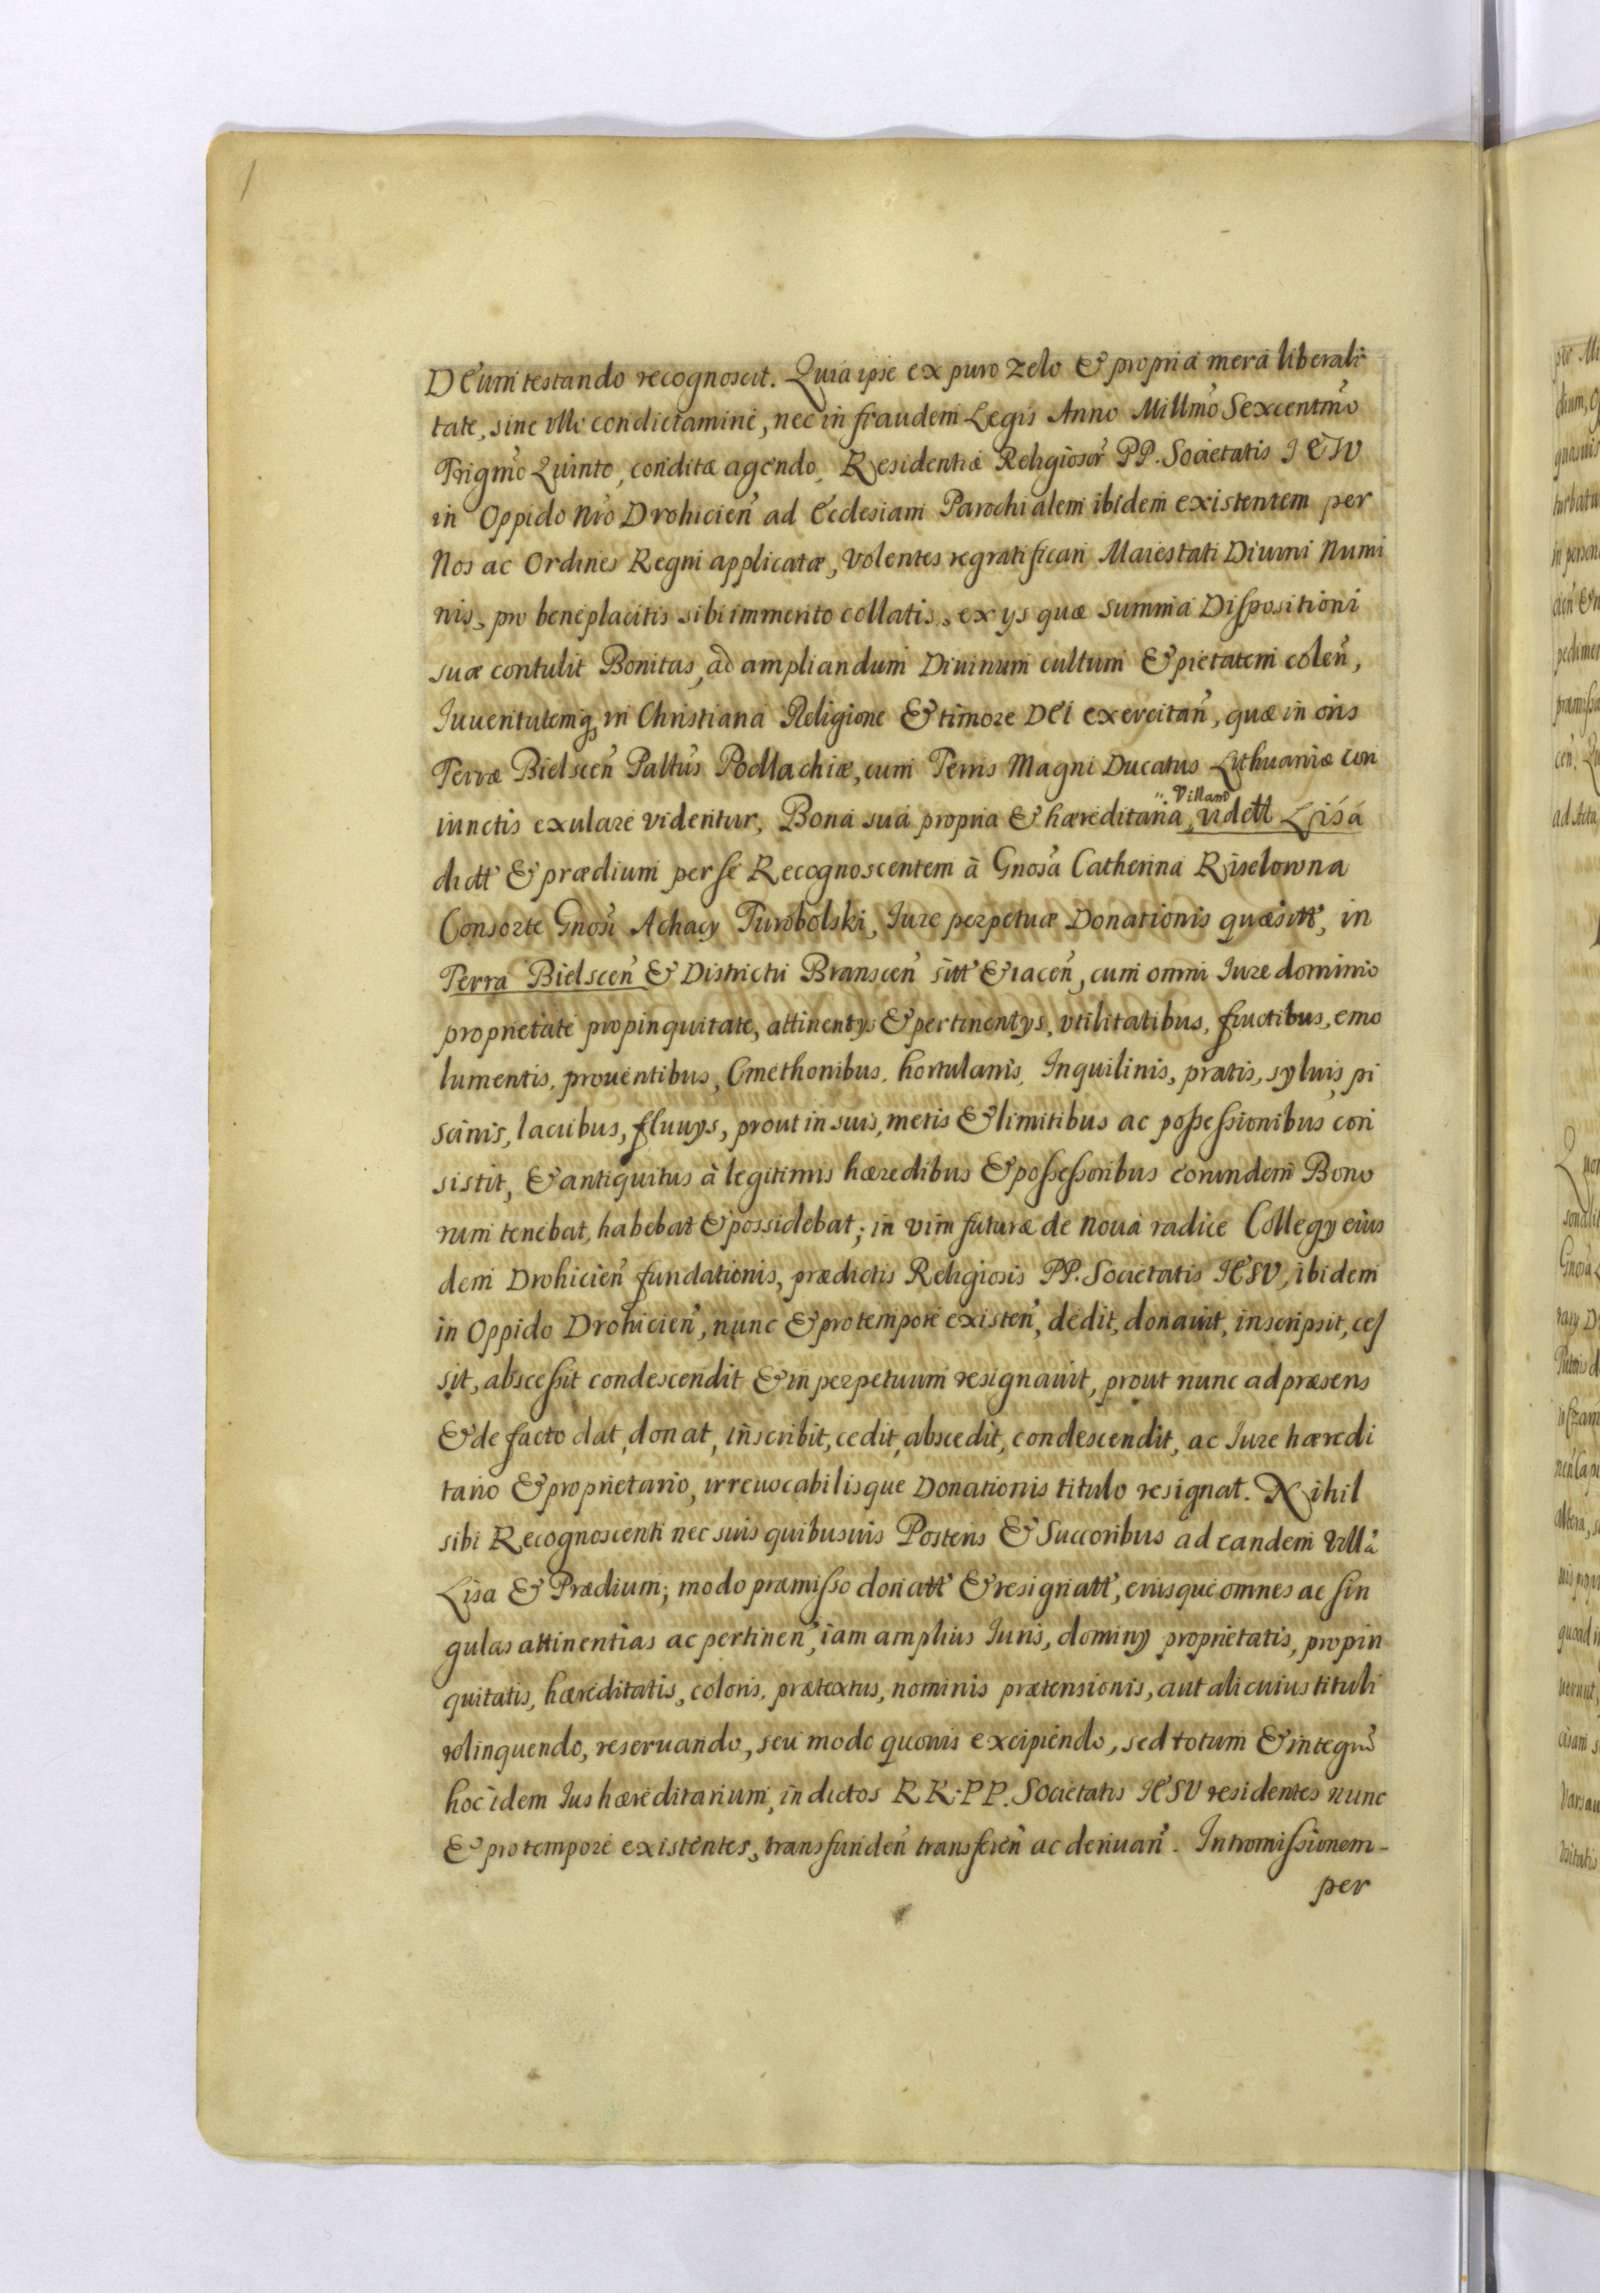 1
DEum testando recognoscit. Quia ipse ex puro zelo & propria mera liberali
tate, sine ullo condictamine, nec in fraudem Legis Anno Millm̃o Sexcentm̃o
Trigm̃o Quinto, conditæ agendo, Residentiæ Religiosor̃ PP. Societatis IESV
in Oppido Nr̃o Drohicien̄ ad Ecclesiam Parochialem ibidem existentem per
Nos ac Ordines Regni applicatæ, Volentes regratificari Maiestati Diuini Numi
nis, pro beneplacitis sibi immerito collatis, ex ys quæ summa Dispositioni
suæ contulit Bonitas, ad ampliandum Diuinum cultum & pietatem colen̄,
Iuuentutemq₃ in Christiana Religione & timore DEI exercitan̄, quæ in oris
Terræ Bielscen̄ Paltũs Podlachiæ, cum Terris Magni Ducatus Lithuaniæ con
iunctis exulare videntur, Bona sua propria & hæreditaria, Villam vidett Lisa
dictt & prædium per se Recognoscentem à Gnosã Catherina Kiselowna
Consorte Gnosi Achacy Turobolski, Iure perpetuæ Donationis quæsitt, in
Terra Bielscen̄ & Districtu Branscen̄ sitt & iacen̄, cum omni Iure dominio
proprietate propinquitate, attinentys & pertinentys, vtilitatibus, fructibus, emo
lumentis, prouentibus, Cmethonibus, hortulanis, Inquilinis, pratis, syluis, pi
scinis, lacubus, fluuys, prout in suis, metis & limitibus ac possessionibus con
sistit, & antiquitus à legitimis hæredibus & possessoribus eorundem Bono
rum tenebat, habebat & possidebat; in vim futuræ de noua radice Collegy eius
dem Drohicien̄ fundationis, prædictis Religiosis PP. Societatis IESV, ibidem
in Oppido Drohicien̄, nunc & pro tempore existen̄, dedit, donauit, inscripsit, ces
sit, abscessit condescendit & in perpetuum resignauit, prout nunc ad præsens
& de facto dat, donat, inscribit, cedit, abscedit, condescendit, ac Iure hæredi
tario & proprietario, irreuocabilisque Donationis titulo resignat. Nihil
sibi Recognoscenti nec suis quibusuis Posteris & Succoribus ad eandem Villã
Lisa & Prædium; modo præmisso donatt & resignatt, eiusque omnes ac sin
gulas attinentias ac pertinen̄, iam amplius Iuris, dominy proprietatis, propin
quitatis, hæreditatis, coloris, prætextus, nominis prætensionis, aut alicuius tituli
relinquendo, reseruando, seu modo quouis excipiendo, sed totum & integrũ
hoc idem Ius hæreditarium, in dictos RR. PP. Societatis IESV residentes nunc
& pro tempore existentes, transfunden̄ transferen̄ ac deriuan̄. Intromissionem-
per